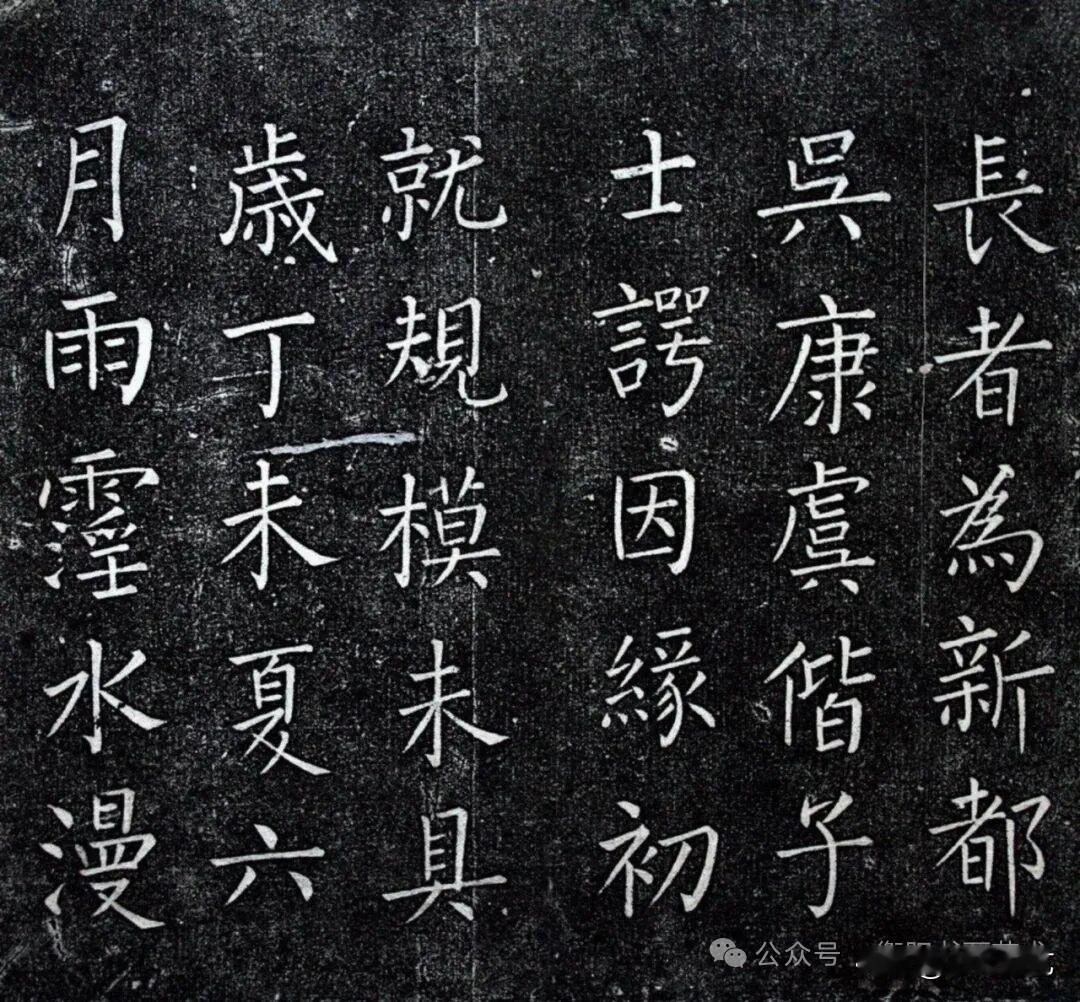 長者為新都
吳康虞偕子
士諤因緣初
就規模未具
歳丁未夏六
月雨霪水漫
公众号